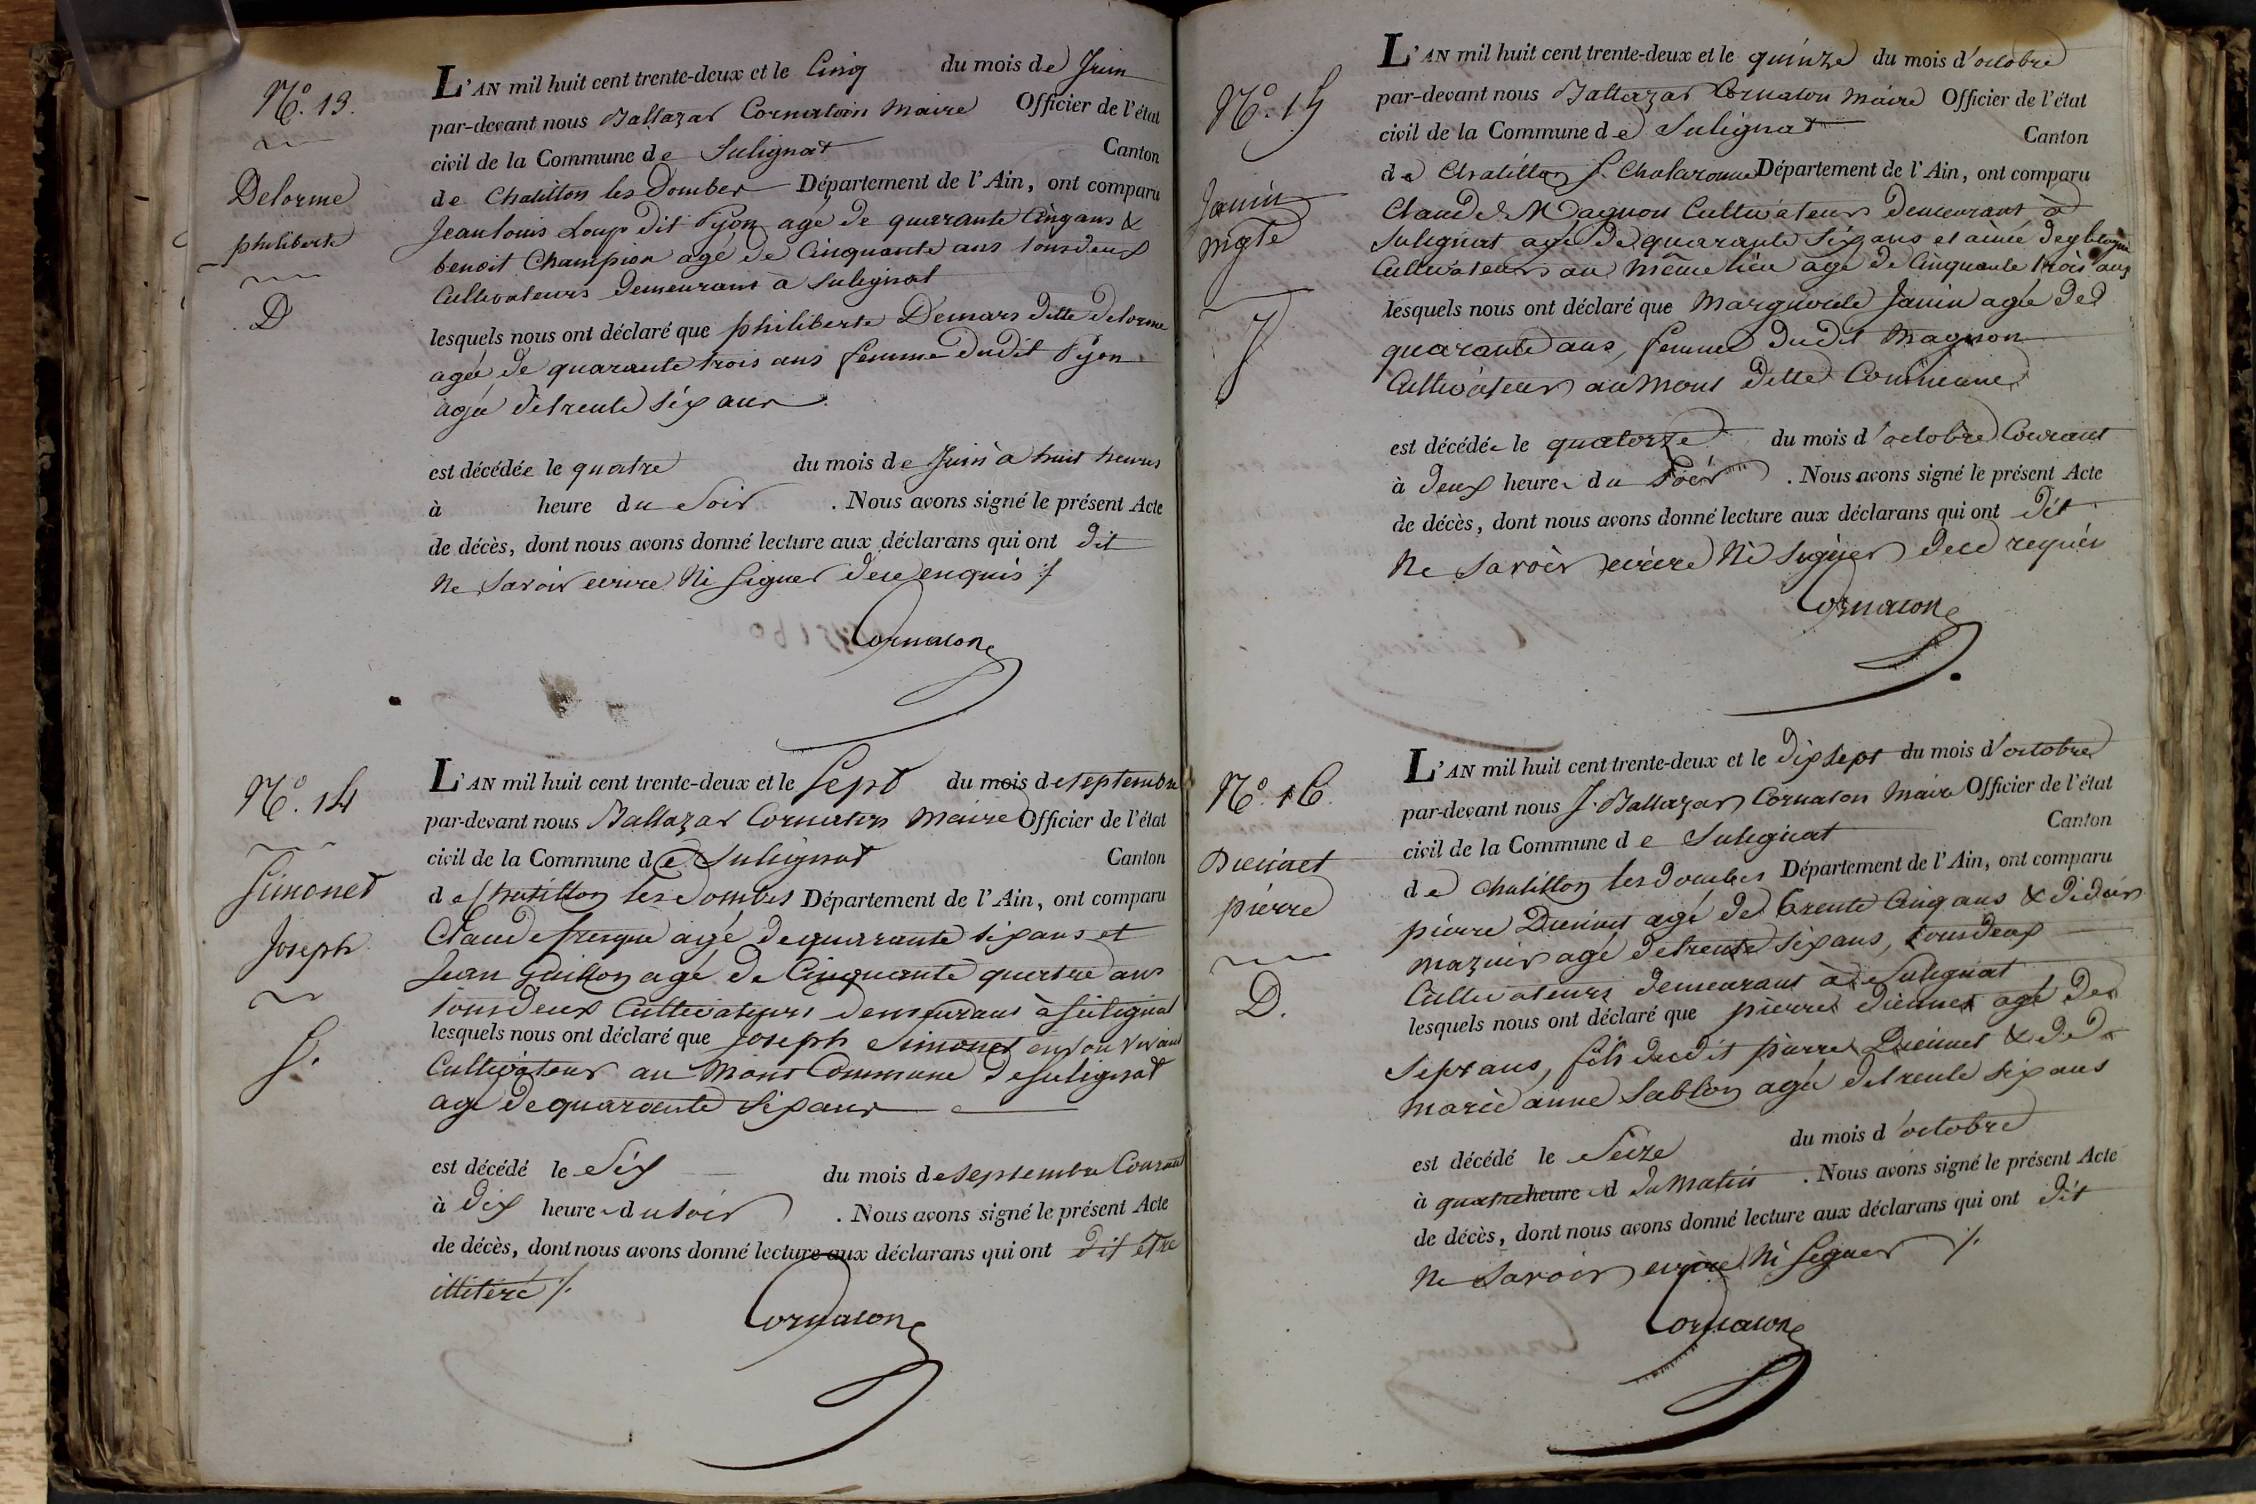 N.o 13.
Delorme
philiberte
D
L'AN mil huit cent trente-deux et le Cinq du mois de Juin
par-devant nous Baltazar Cornaton Maire Officier de l'état
civil de la Commune de Sulignat Canton
de Chatillon les Dombes Département de l'Ain, ont comparu
Jean louis Loup dit Pyon agé de quarante Cinq ans &
benoit Champion agé de Cinquante ans tous deux
Cultivateurs demeurant à Sulignat
lesquels nous ont déclaré que philiberte Demars ditte delorme
agée de quarante trois ans femme dudit Pyon
agée de trente six ans
est décédée le quatre du mois de Juin à huit heures
à heure du Soir . Nous avons signé le présent Acte
de décès, dont nous avons donné lecture aux déclarans qui ont dit
Ne Savoir ecrire Ni Signer de ce enquis ./.
Cornaton
N.o 14
Simonet
Joseph
S.
L'AN mil huit cent trente-deux et le Sept du mois de septembre
par-devant nous Baltazar Cornaton Maire Officier de l'état
civil de la Commune de Sulignat Canton
de Chatillon les Dombes Département de l'Ain, ont comparu
Claude fresque agé de quarante six ans et
Jean Guillon agé de Cinquante quatre ans
tous deux Cultivateurs demeurant à Sulignat
lesquels nous ont déclaré que Joseph Simonet en son vivant
Cultivateur au Mont Commune de Sulignat
agé de quarante six ans
est décédé le Six du mois de septembre Courant
à dix heures du soir . Nous avons signé le présent Acte
de décès, dont nous avons donné lecture aux déclarans qui ont dit etre
illitéré ./.
Cornaton
N.o 15
Janin
Mgte
J
L'AN mil huit cent trente-deux et le quinze du mois d'octobre
par-devant nous Baltazar Cornaton Maire Officier de l'état
civil de la Commune de Sulignat Canton
de Chatillon S. Chalaronne Département de l'Ain, ont comparu
Claude Magnon Cultivateur demeurant à
Sulignat agé de quarante six ans et aimé
Cultivateur au même lieu agé de Cinquante trois ans
lesquels nous ont déclaré que Marguerite Janin agée de
quarante ans, femme dudit Magnon
Cultivateur au Mont ditte Commune
est décédée le quatorze du mois d'octobre Courant
à deux heures du Soir . Nous avons signé le présent Acte
de décès, dont nous avons donné lecture aux déclarans qui ont dit
Ne Savoir ecrire Ni Signer de ce requis
Cornaton
N.o 16.
Dieinet
pierre
D.
L'AN mil huit cent trente-deux et le dix sept du mois d'octobre
par-devant nous J. Baltazar Cornaton Maire Officier de l'état
civil de la Commune de Sulignat Canton
de Chatillon les Dombes Département de l'Ain, ont comparu
pierre agé de trente Cinq ans & didier
mazuir agé de trente six ans, tous deux
Cultivateurs demeurant à Sulignat
lesquels nous ont déclaré que pierre agé de
Sept ans, fils dudit pierre & de
marie anne Sablon agée de trente six ans
est décédé le Seize du mois d'octobre
à quatre heure d du Matin . Nous avons signé le présent Acte
de décès, dont nous avons donné lecture aux déclarans qui ont dit
Ne Savoir ecrire Ni Signer ./.
Cornaton